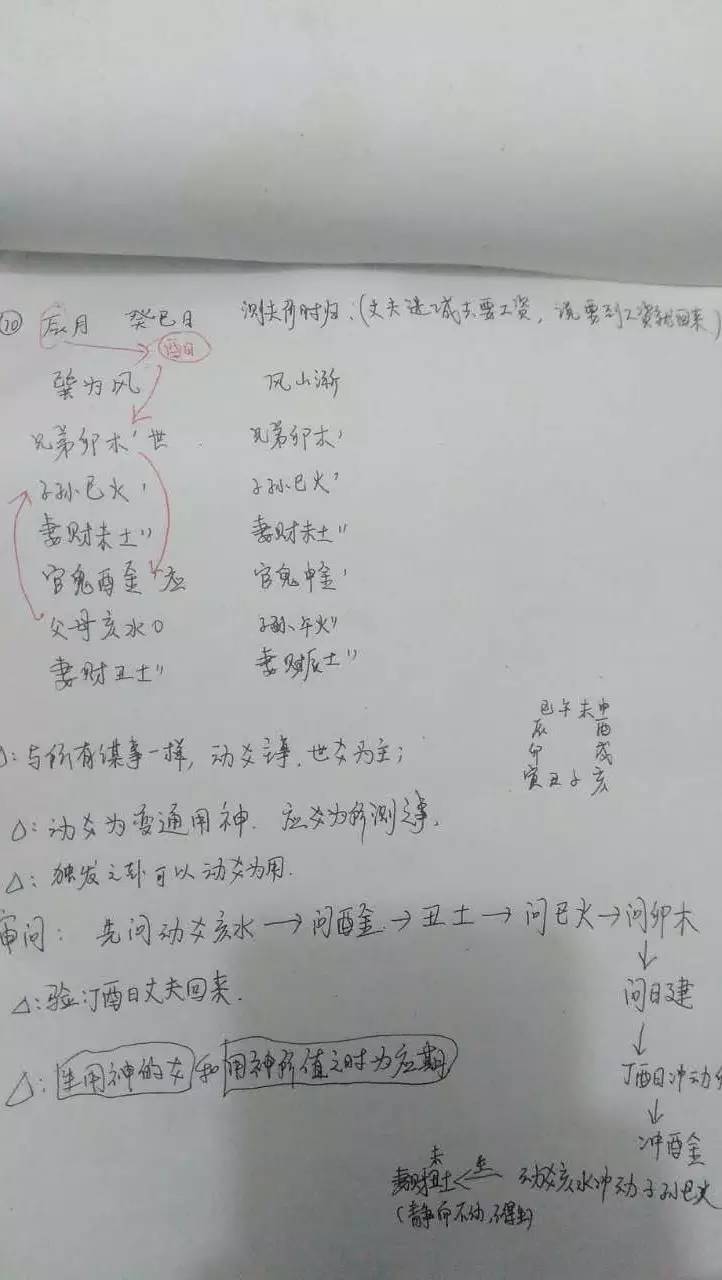 ⑳ 辰月 癸巳日 测夫何时归:(丈夫进城去要工资,说要到工资就回来)
酉日
巽为风 风山渐
兄弟卯木' 世 兄弟卯木'
子孙巳火' 子孙巳火'
妻财未土" 妻财未土"
官鬼酉金' 应 官鬼申金'
父母亥水0 子孙午火"
妻财丑土" 妻财辰土"
巳午未申
辰 酉
卯 戌
寅丑子亥
△:与所有谋事一样,动爻主事,世爻为主;
△:动爻为变通用神.应爻为所测之事.
△:独发之卦可以动爻为用.
审问: 先问动爻亥水→问酉金→丑土→问巳火→问卯木
↓
问日建
↓
丁酉日冲动
↓
冲酉金
△:验:丁酉日丈夫回来.
△:生用神的爻和用神所值之时为应期
未
妻财丑土 生 动爻亥水冲动子孙巳火